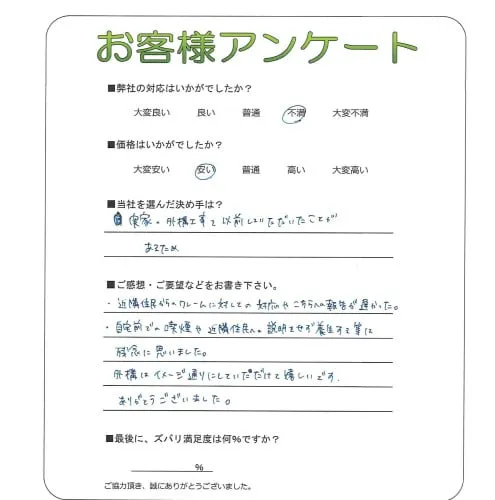 お客様アンケート
■弊社の対応はいかがでしたか？
大変良い 良い 普通 不満 大変不満
■価格はいかがでしたか？
大変安い 安い 普通 高い 大変高い
■当社を選んだ決め手は？
実家の外構工事で以前していただいたことが
あるため
■ご感想・ご要望などをお書き下さい。
・近隣住民からのクレームに対しての対応やこちらへの報告が遅かった。
・自宅前での喫煙や近隣住民への説明もせず養生する等は
残念に思いました。
外構はイメージ通りにしていただけて嬉しいです。
ありがとうございました。
■最後に、ズバリ満足度は何％ですか？
％
ご協力頂き、誠にありがとうございました。